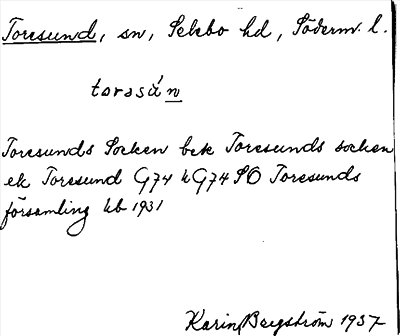 Toresund, sn, Selebo hd, Söderm. l.
torəsún
Toresunds Socken bek Toresunds socken
ek Toresund G74 k G74 SO Toresunds
församling kb 1931
Karin Bergström 1937